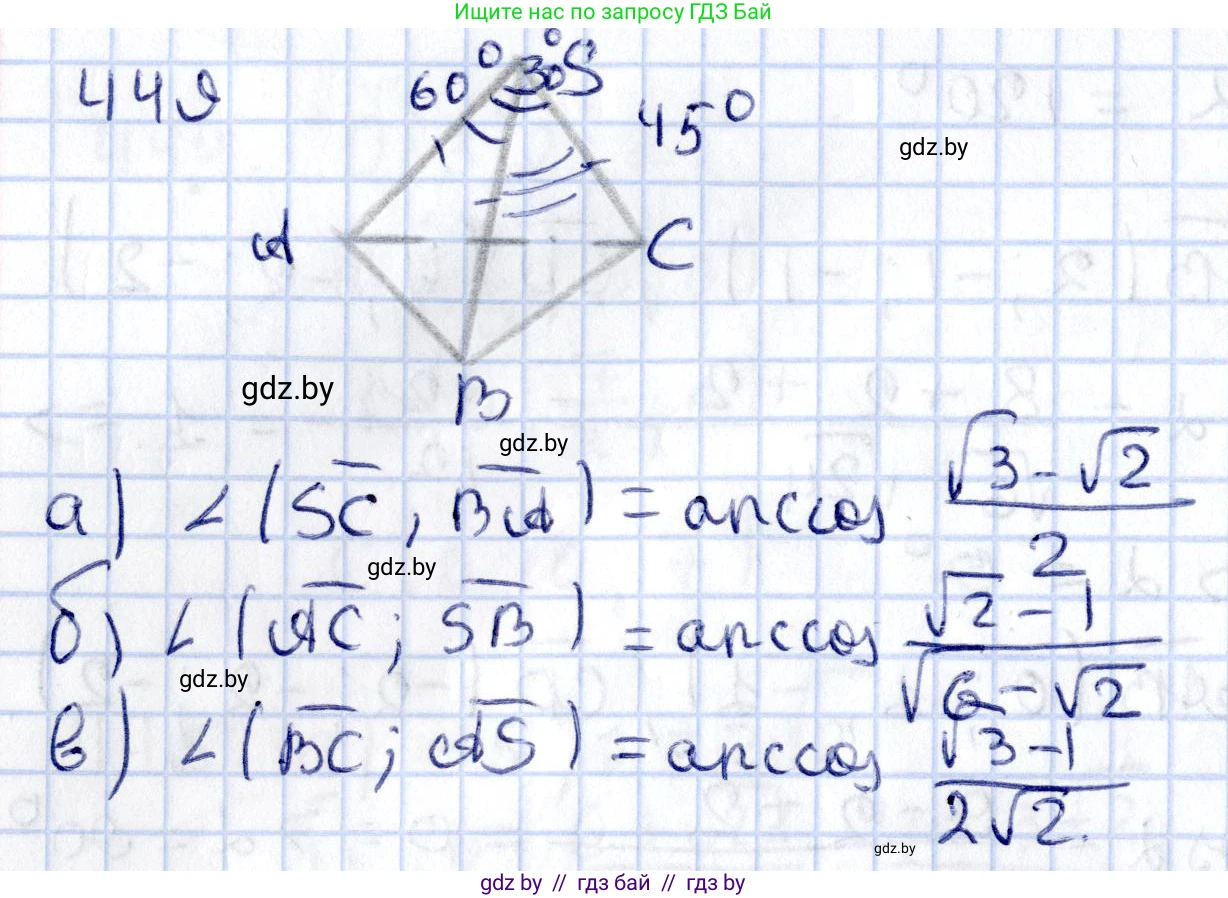 Ищите нас по запросу ГДЗ Бай
449
60° 30° S
45°
gdz.by
A
C
gdz.by
B
gdz.by
а) ∠(SC, BA) = arccos (√3 - √2)/2
gdz.by
б) ∠(AC; SB) = arccos (√2 - 1)/√(6 - √2)
gdz.by
в) ∠(BC; AS) = arccos (√3 - 1)/(2√2).
gdz.by
gdz.by // гдз бай // гдз by